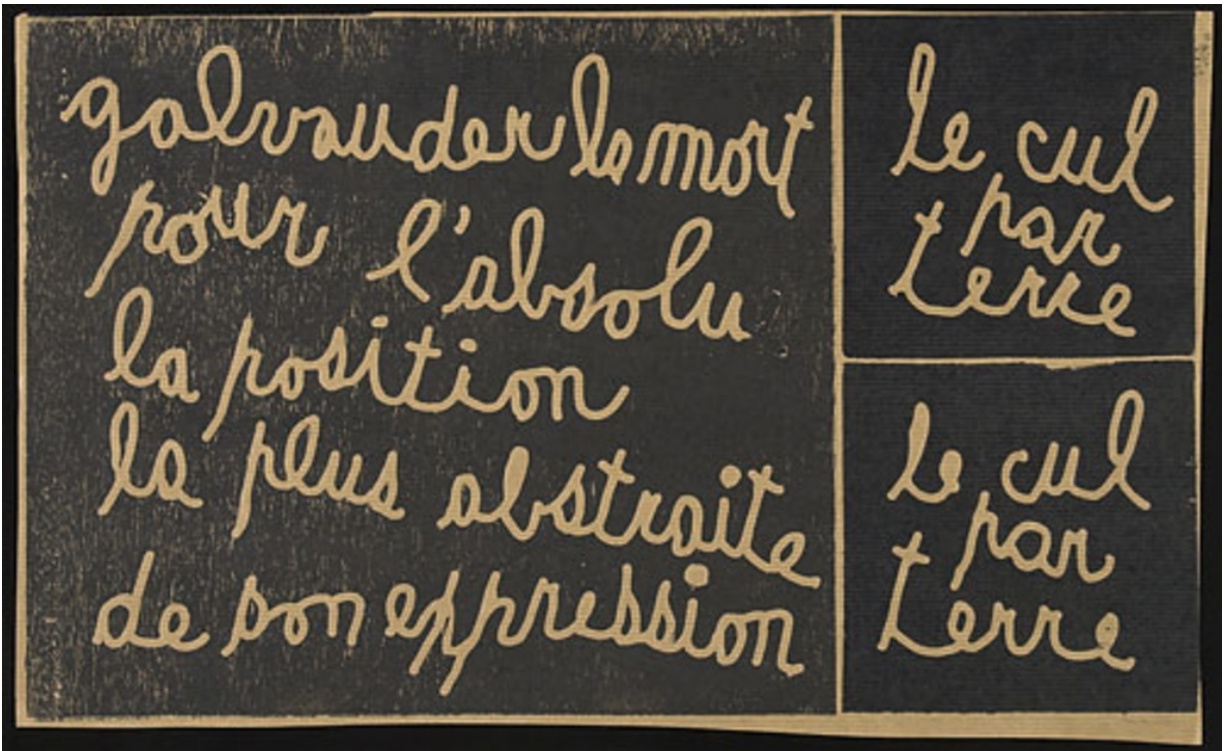 galvauder la mort
pour l'absolu
la position
la plus abstraite
de son expression
le cul
par
terre
le cul
par
terre